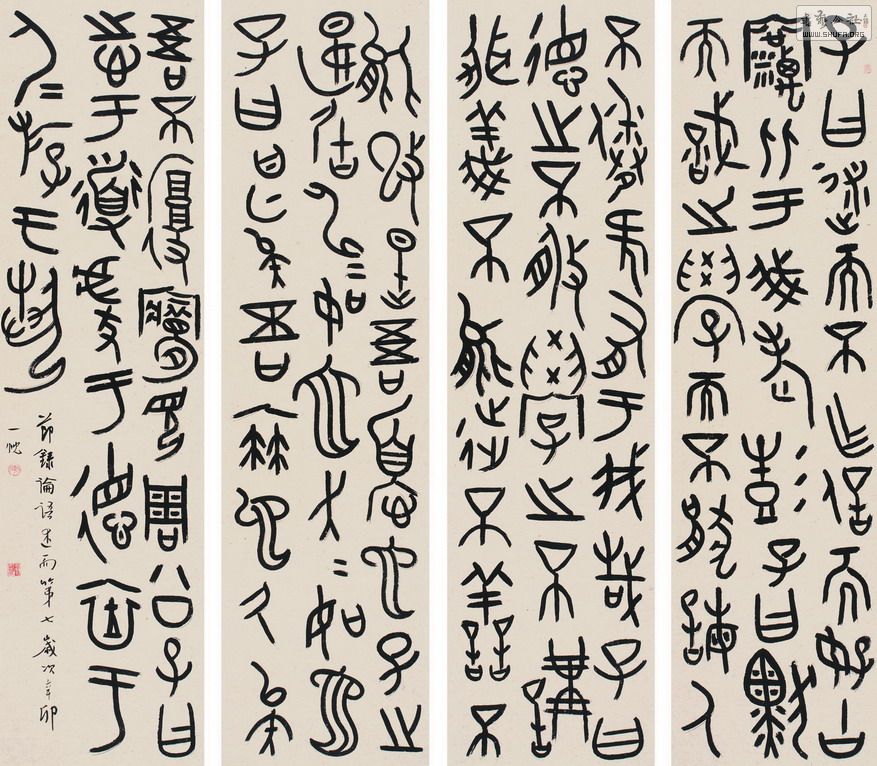 子曰述而不作信而好古
竊比于我老彭子曰默
而識之學而不厭誨人
不倦何有于我哉子曰
德之不修學之不講
聞義不能徙不善不
能改是吾憂也子之
燕居申=如也夭=如也
子曰甚矣吾衰也久矣
吾不復夢見周公子曰
志于道據于德依于
仁游于藝
節錄論語述而第七歲次辛卯
書法公社
WWW.SHUFA.ORG